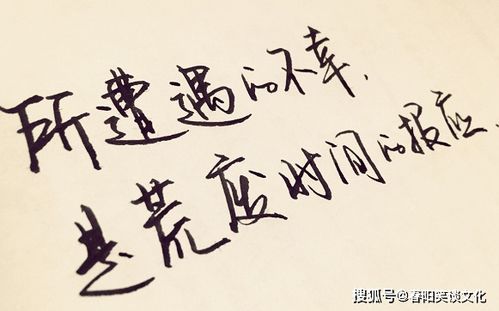 所遭遇的不幸，
是荒废时间的报应
搜狐号@春阳笑谈文化